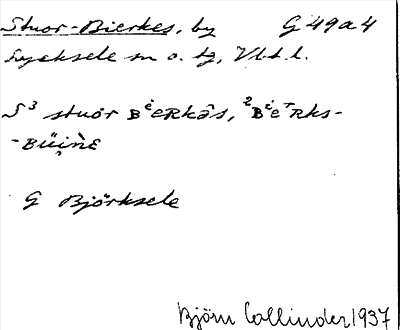 Stuor-Bierkes, by G 49a4
Lycksele sn o. tg, Vbt. l.
S³ stuor BⁱeRkâs, ²BⁱeʳRks-
-Büi̯ǹE
G Björksele
Björn Collinder 1937